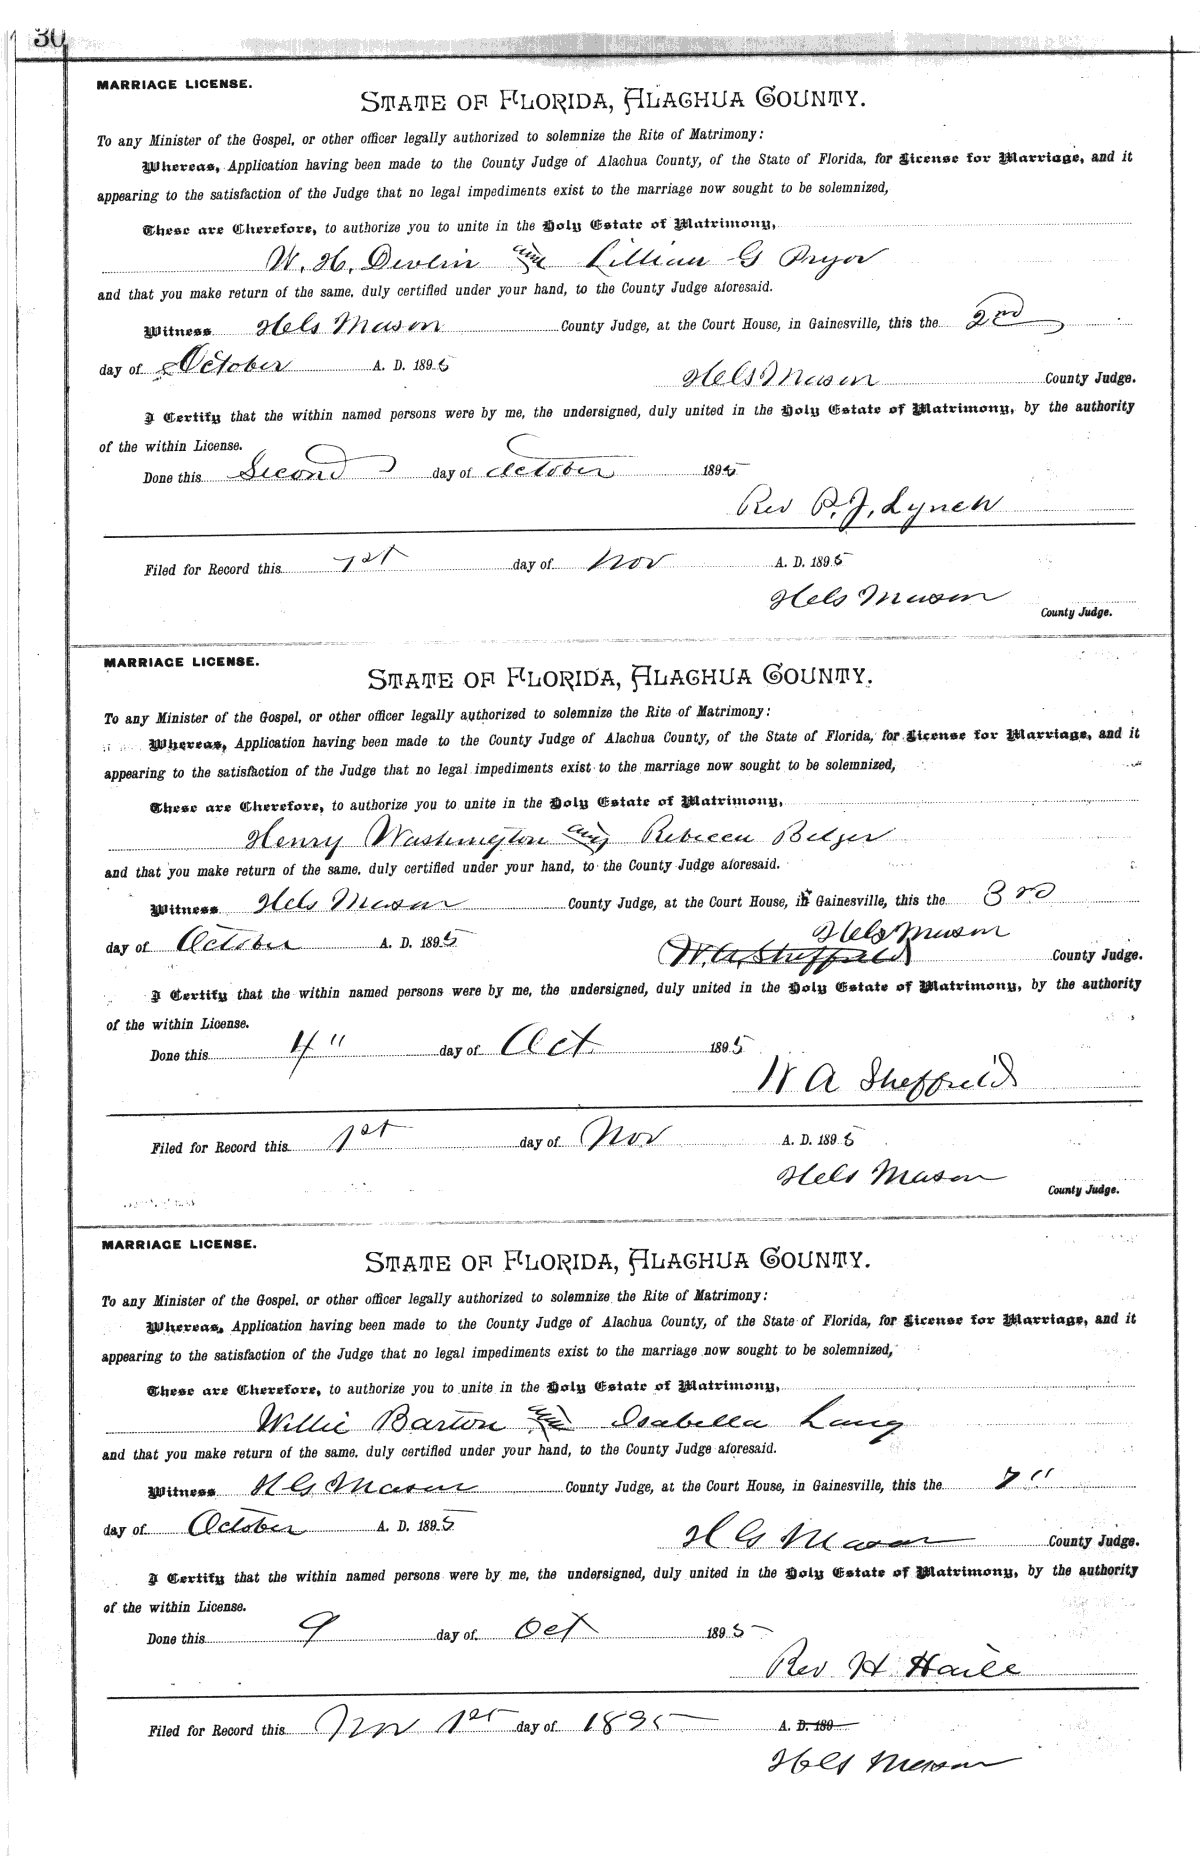 30
MARRIAGE LICENSE.
STATE OF FLORIDA, ALACHUA COUNTY.
To any Minister of the Gospel, or other officer legally authorized to solemnize the Rite of Matrimony:
Whereas, Application having been made to the County Judge of Alachua County, of the State of Florida, for License for Marriage, and it
appearing to the satisfaction of the Judge that no legal impediments exist to the marriage now sought to be solemnized,
These are Therefore, to authorize you to unite in the Holy Estate of Matrimony,
W. H. Devlin and Lillian G Pryor
and that you make return of the same, duly certified under your hand, to the County Judge aforesaid.
Witness Mason County Judge, at the Court House, in Gainesville, this the 2nd
day of October A. D. 1895
Mason County Judge.
I Certify that the within named persons were by me, the undersigned, duly united in the Holy Estate of Matrimony, by the authority
of the within License.
Done this Second day of October 1895
Rev P. J. Lynch
Filed for Record this 1st day of Nov A. D. 1895
Mason
County Judge.
MARRIAGE LICENSE.
STATE OF FLORIDA, ALACHUA COUNTY.
To any Minister of the Gospel, or other officer legally authorized to solemnize the Rite of Matrimony:
Whereas, Application having been made to the County Judge of Alachua County, of the State of Florida, for License for Marriage, and it
appearing to the satisfaction of the Judge that no legal impediments exist to the marriage now sought to be solemnized,
These are Therefore, to authorize you to unite in the Holy Estate of Matrimony,
Henry Washington and Rebecca Belger
and that you make return of the same, duly certified under your hand, to the County Judge aforesaid.
Witness Mason County Judge, at the Court House, in Gainesville, this the 3rd
Mason
day of October A. D. 1895 W. A. Sheffield County Judge.
I Certify that the within named persons were by me, the undersigned, duly united in the Holy Estate of Matrimony, by the authority
of the within License.
Done this 4" day of Oct. 1895
W A Sheffield
Filed for Record this 1st day of Nov A. D. 1895
Mason
County Judge.
MARRIAGE LICENSE.
STATE OF FLORIDA, ALACHUA COUNTY.
To any Minister of the Gospel, or other officer legally authorized to solemnize the Rite of Matrimony:
Whereas, Application having been made to the County Judge of Alachua County, of the State of Florida, for License for Marriage, and it
appearing to the satisfaction of the Judge that no legal impediments exist to the marriage now sought to be solemnized,
These are Therefore, to authorize you to unite in the Holy Estate of Matrimony,
Willie Barton and Isabella Lang
and that you make return of the same, duly certified under your hand, to the County Judge aforesaid.
Witness H G Mason County Judge, at the Court House, in Gainesville, this the 7"
day of October A. D. 1895
H G Mason County Judge.
I Certify that the within named persons were by me, the undersigned, duly united in the Holy Estate of Matrimony, by the authority
of the within License.
Done this 9 day of Oct 1895
Rev H Haile
Filed for Record this Nov 1st day of 1895 A. D. 189
Mason